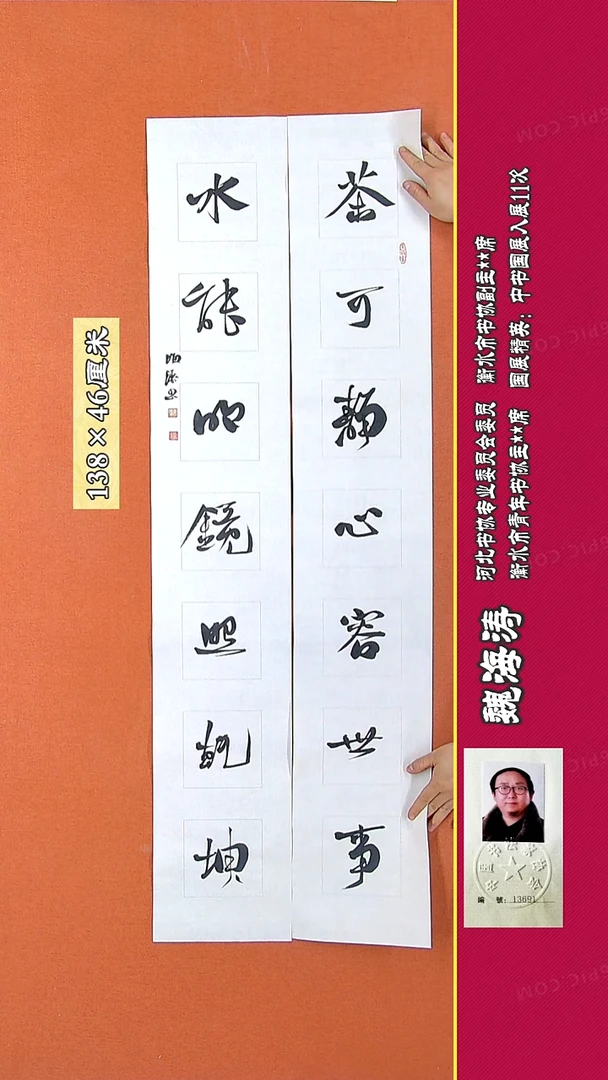 茶可静心容世事
水能明鏡照乾坤
138×46厘米
河北书协专业委员会委员 衡水市书协副主**席
衡水市青年书协主**席 国展精英：中书国展入展11次
魏海涛
编 號：13691